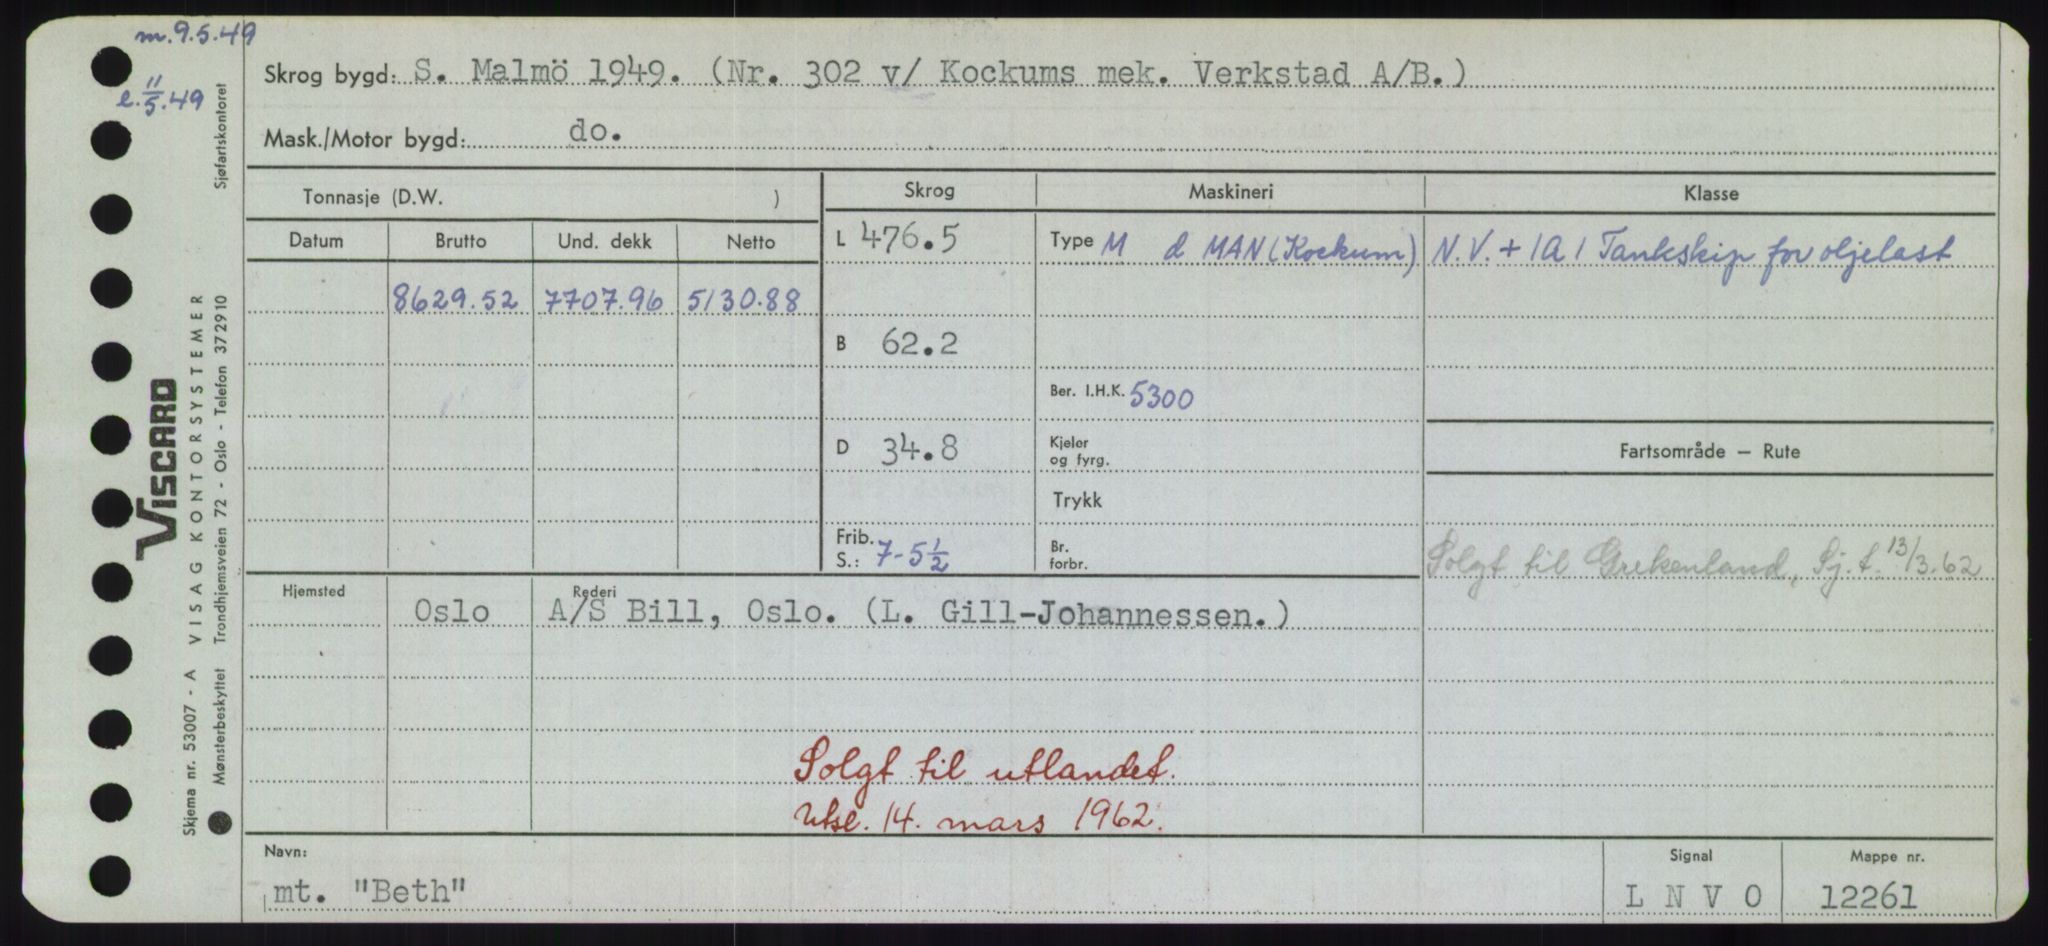 m.9.5.49
e. 11/5.49
Skrog bygd: S. Malmö 1949. (Nr. 302 v/ Kockums mek. Verkstad A/B.)
Mask./Motor bygd: do.
Tonnasje (D.W. )
Skrog Maskineri Klasse
Datum Brutto Und. dekk Netto
L 476.5 Type M d MAN (Kockum) N.V. + 1A1 Tankskip for oljelast
8629.52 7707.96 5130.88
B 62.2
Ber. I.H.K. 5300
D 34.8
Kjeler og fyrg.
Fartsområde — Rute
Trykk
Frib. S.: 7-5½
Br. forbr.
Solgt til Grekenland, Sj.t. 13/3.62
Hjemsted Rederi
Oslo A/S Bill, Oslo. (L. Gill-Johannessen.)
Solgt til utlandet.
Utsl. 14. mars 1962.
Navn: Signal Mappe nr.
mt. "Beth" L N V O 12261
Skjema nr. 53007 - A VISAG KONTORSYSTEMER
Viscard
Mønsterbeskyttet Trondhjemsveien 72 - Oslo - Telefon 372910 Sjøfartskontoret